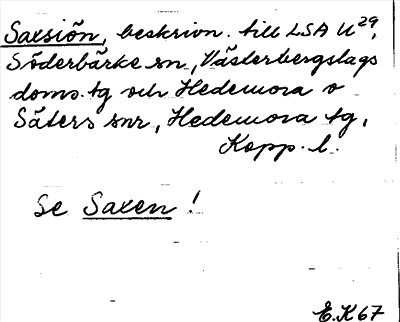 Saxsjön, beskrivn. till LSA U 29,
Söderbärke sn, Västerbergslags
doms. tg och Hedemora o
Säters snr, Hedemora tg,
Kopp. l.
Se Saxen !
E.K 67